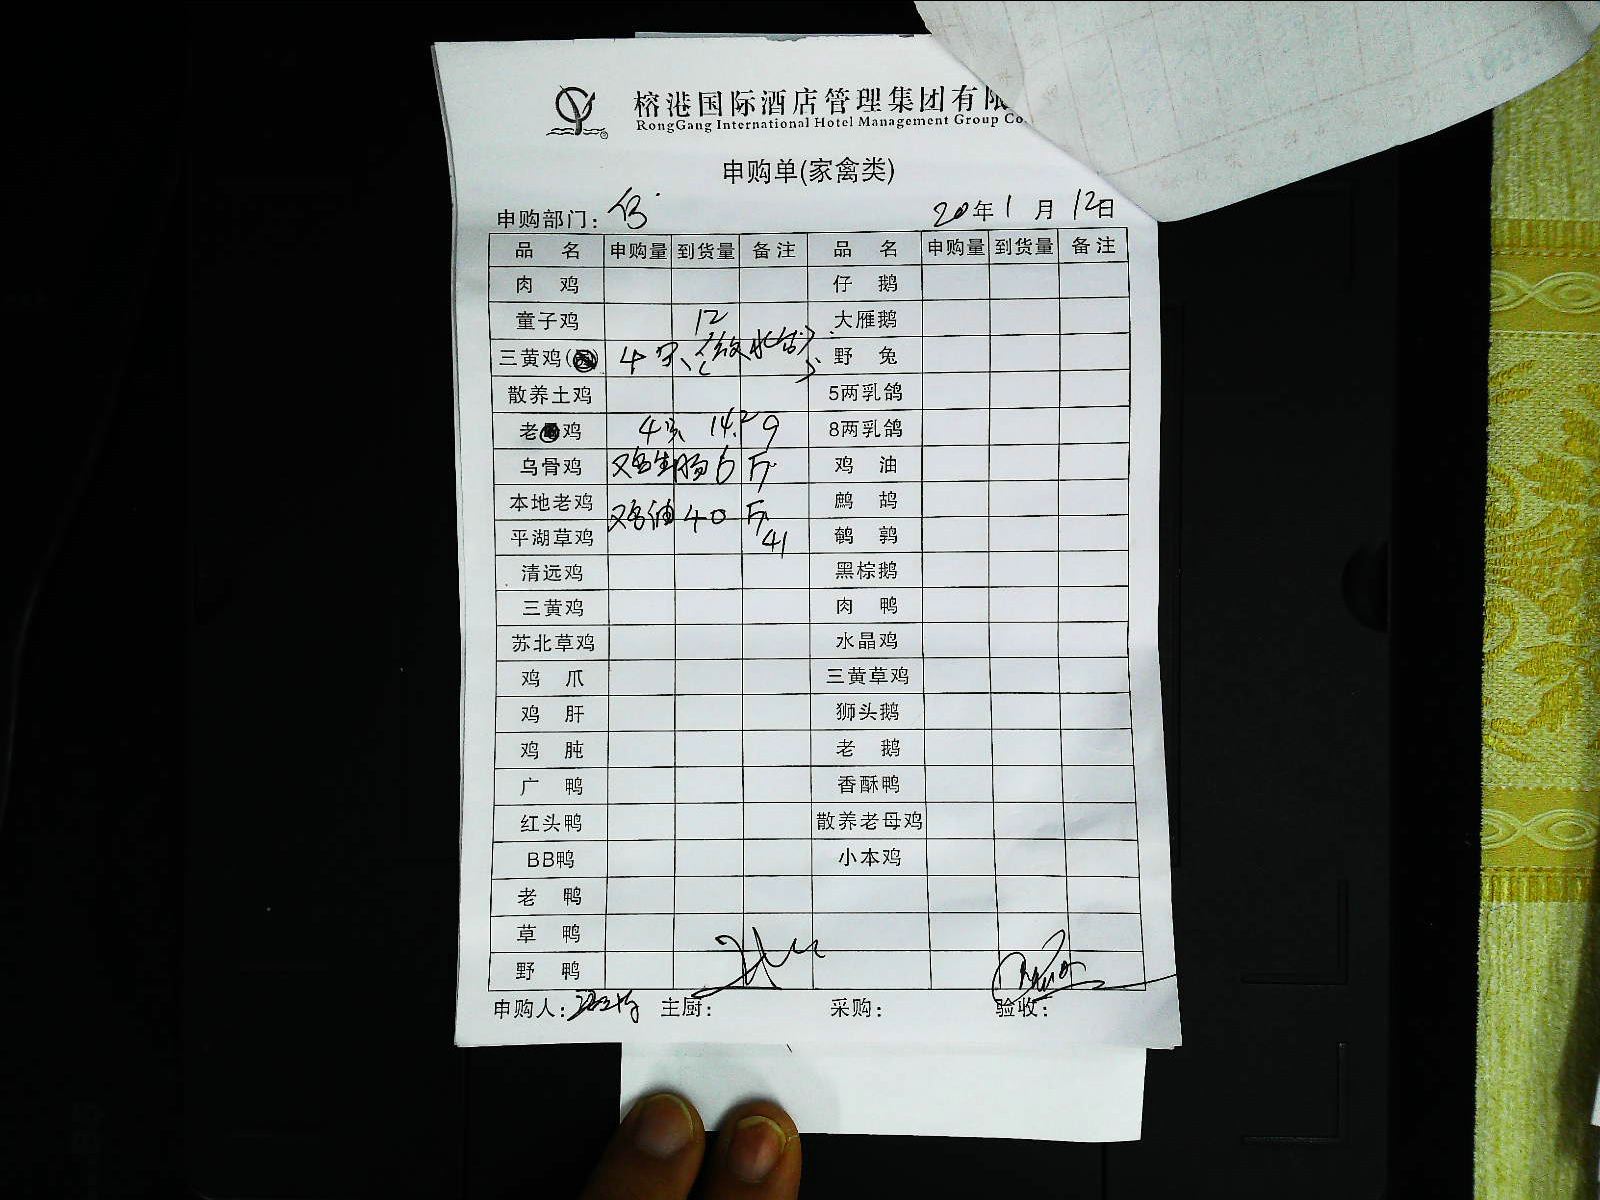 榕港国际酒店管理集团有限
RongGang International Hotel Management Group Co.
申购单(家禽类)
申购部门:
20年1月12日
品名 申购量 到货量 备注 品名 申购量 到货量 备注
肉鸡 仔鹅
童子鸡 12 大雁鹅
三黄鸡( 4只 野兔
散养土鸡 5两乳鸽
老鸡 4只 14.2 9 8两乳鸽
乌骨鸡 鸡生肠6斤 鸡油
本地老鸡 鸡油40斤 鹧鸪
平湖草鸡 41 鹌鹑
清远鸡 黑棕鹅
三黄鸡 肉鸭
苏北草鸡 水晶鸡
鸡爪 三黄草鸡
鸡肝 狮头鹅
鸡肫 老鹅
广鸭 香酥鸭
红头鸭 散养老母鸡
BB鸭 小本鸡
老鸭
草鸭
野鸭
申购人: 主厨: 采购: 验收: